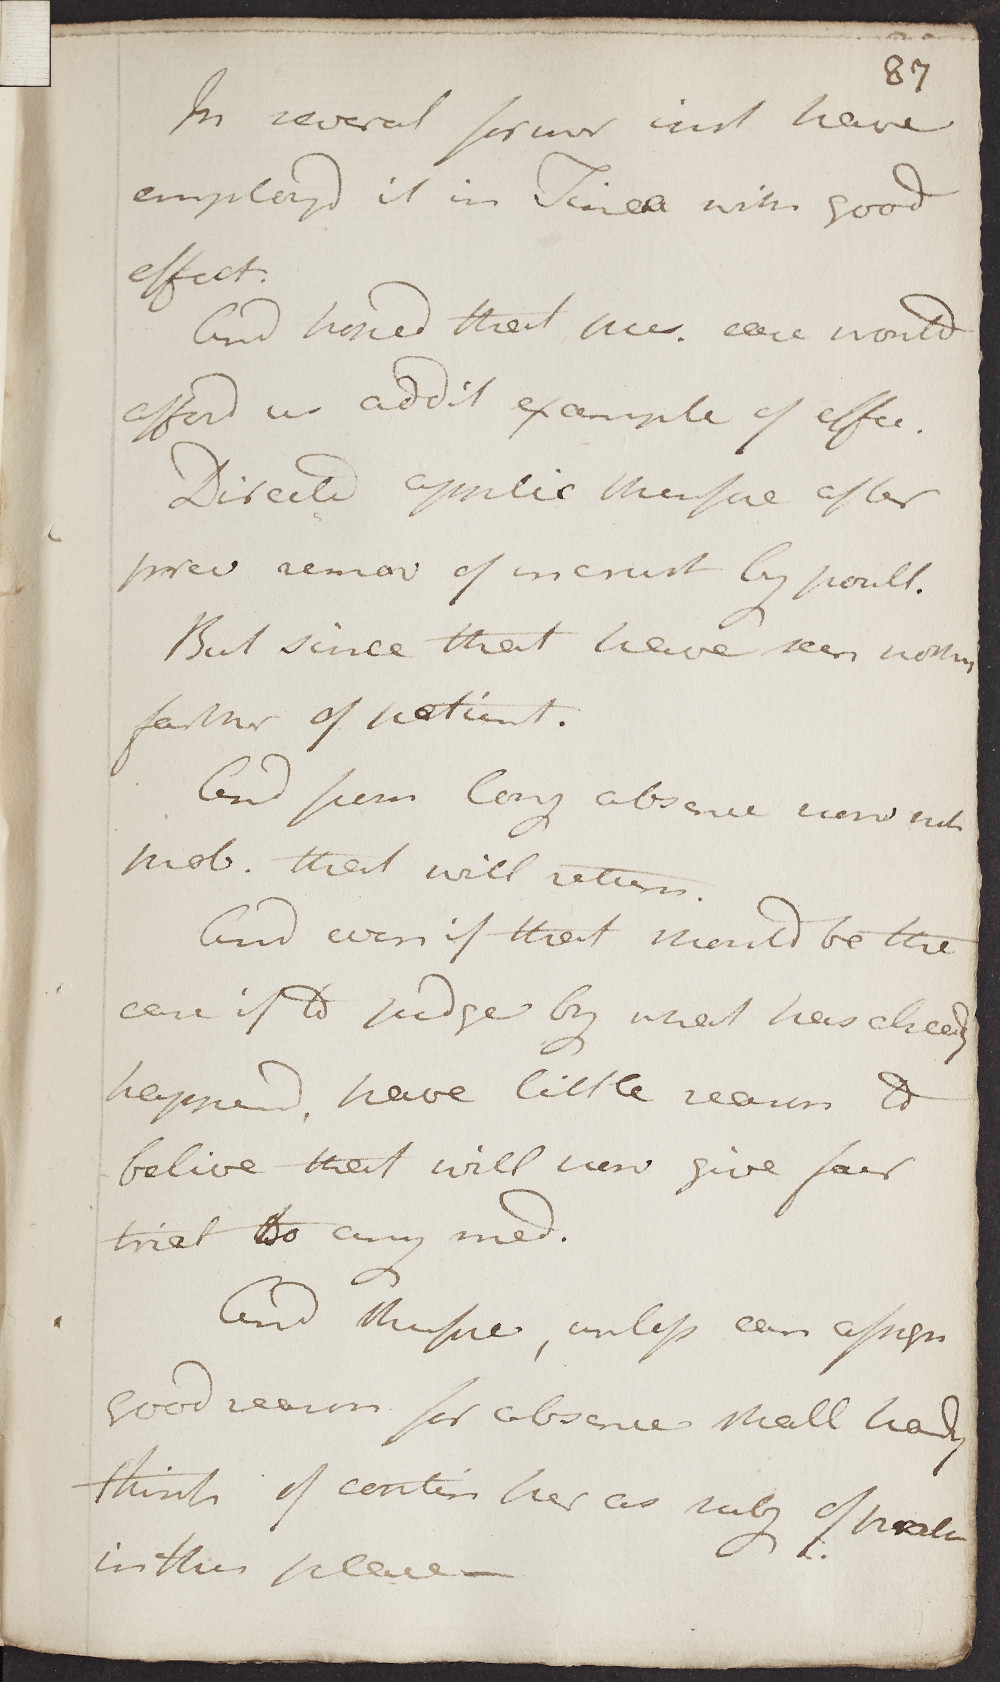 87
In several former inst have
employd it in Tinea with good
effect.
And hoped that pres. case would
afford us addit example of effic.
Directd applic therfore after
prev remov of incrust by poult.
But since that have seen nothing
farther of patient.
And from long absence now not
prob. that will return.
And even if that should be the
case if to judge by what has already
happend, have little reason to
belive that will now give fair
trial to any med.
And therfore, unless can assign
good reason for absence shall hardly
think of contin her as subj of prelec
in this place—